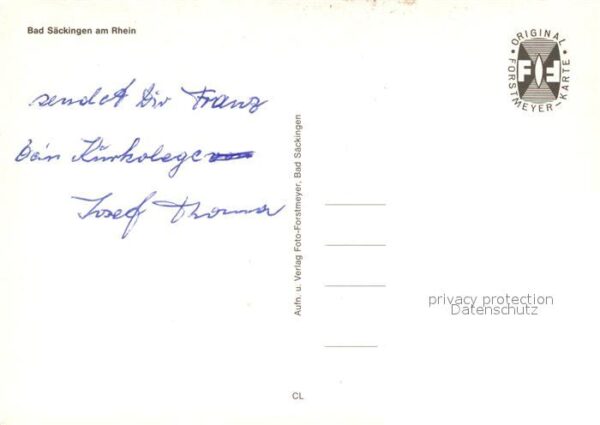 Bad Säckingen am Rhein
ORIGINAL
FORSTMEYER-KARTE
FF
sendet Dir Franz
Dein Kurkolege
Josef Thoma
Aufn. u. Verlag Foto-Forstmeyer, Bad Säckingen
privacy protection
Datenschutz
CL